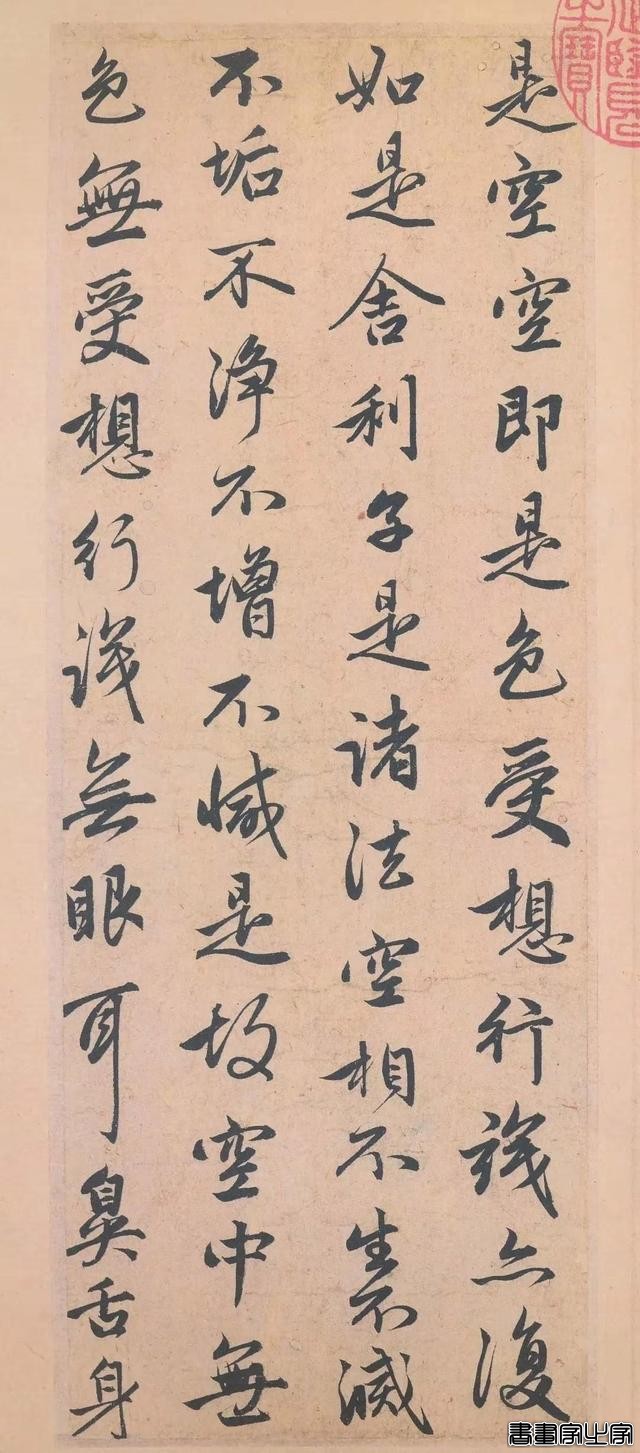 是空空即是色受想行識亦復
如是舍利子是諸法空相不生不滅
不垢不淨不增不減是故空中無
色無受想行識無眼耳鼻舌身
書畫字出字